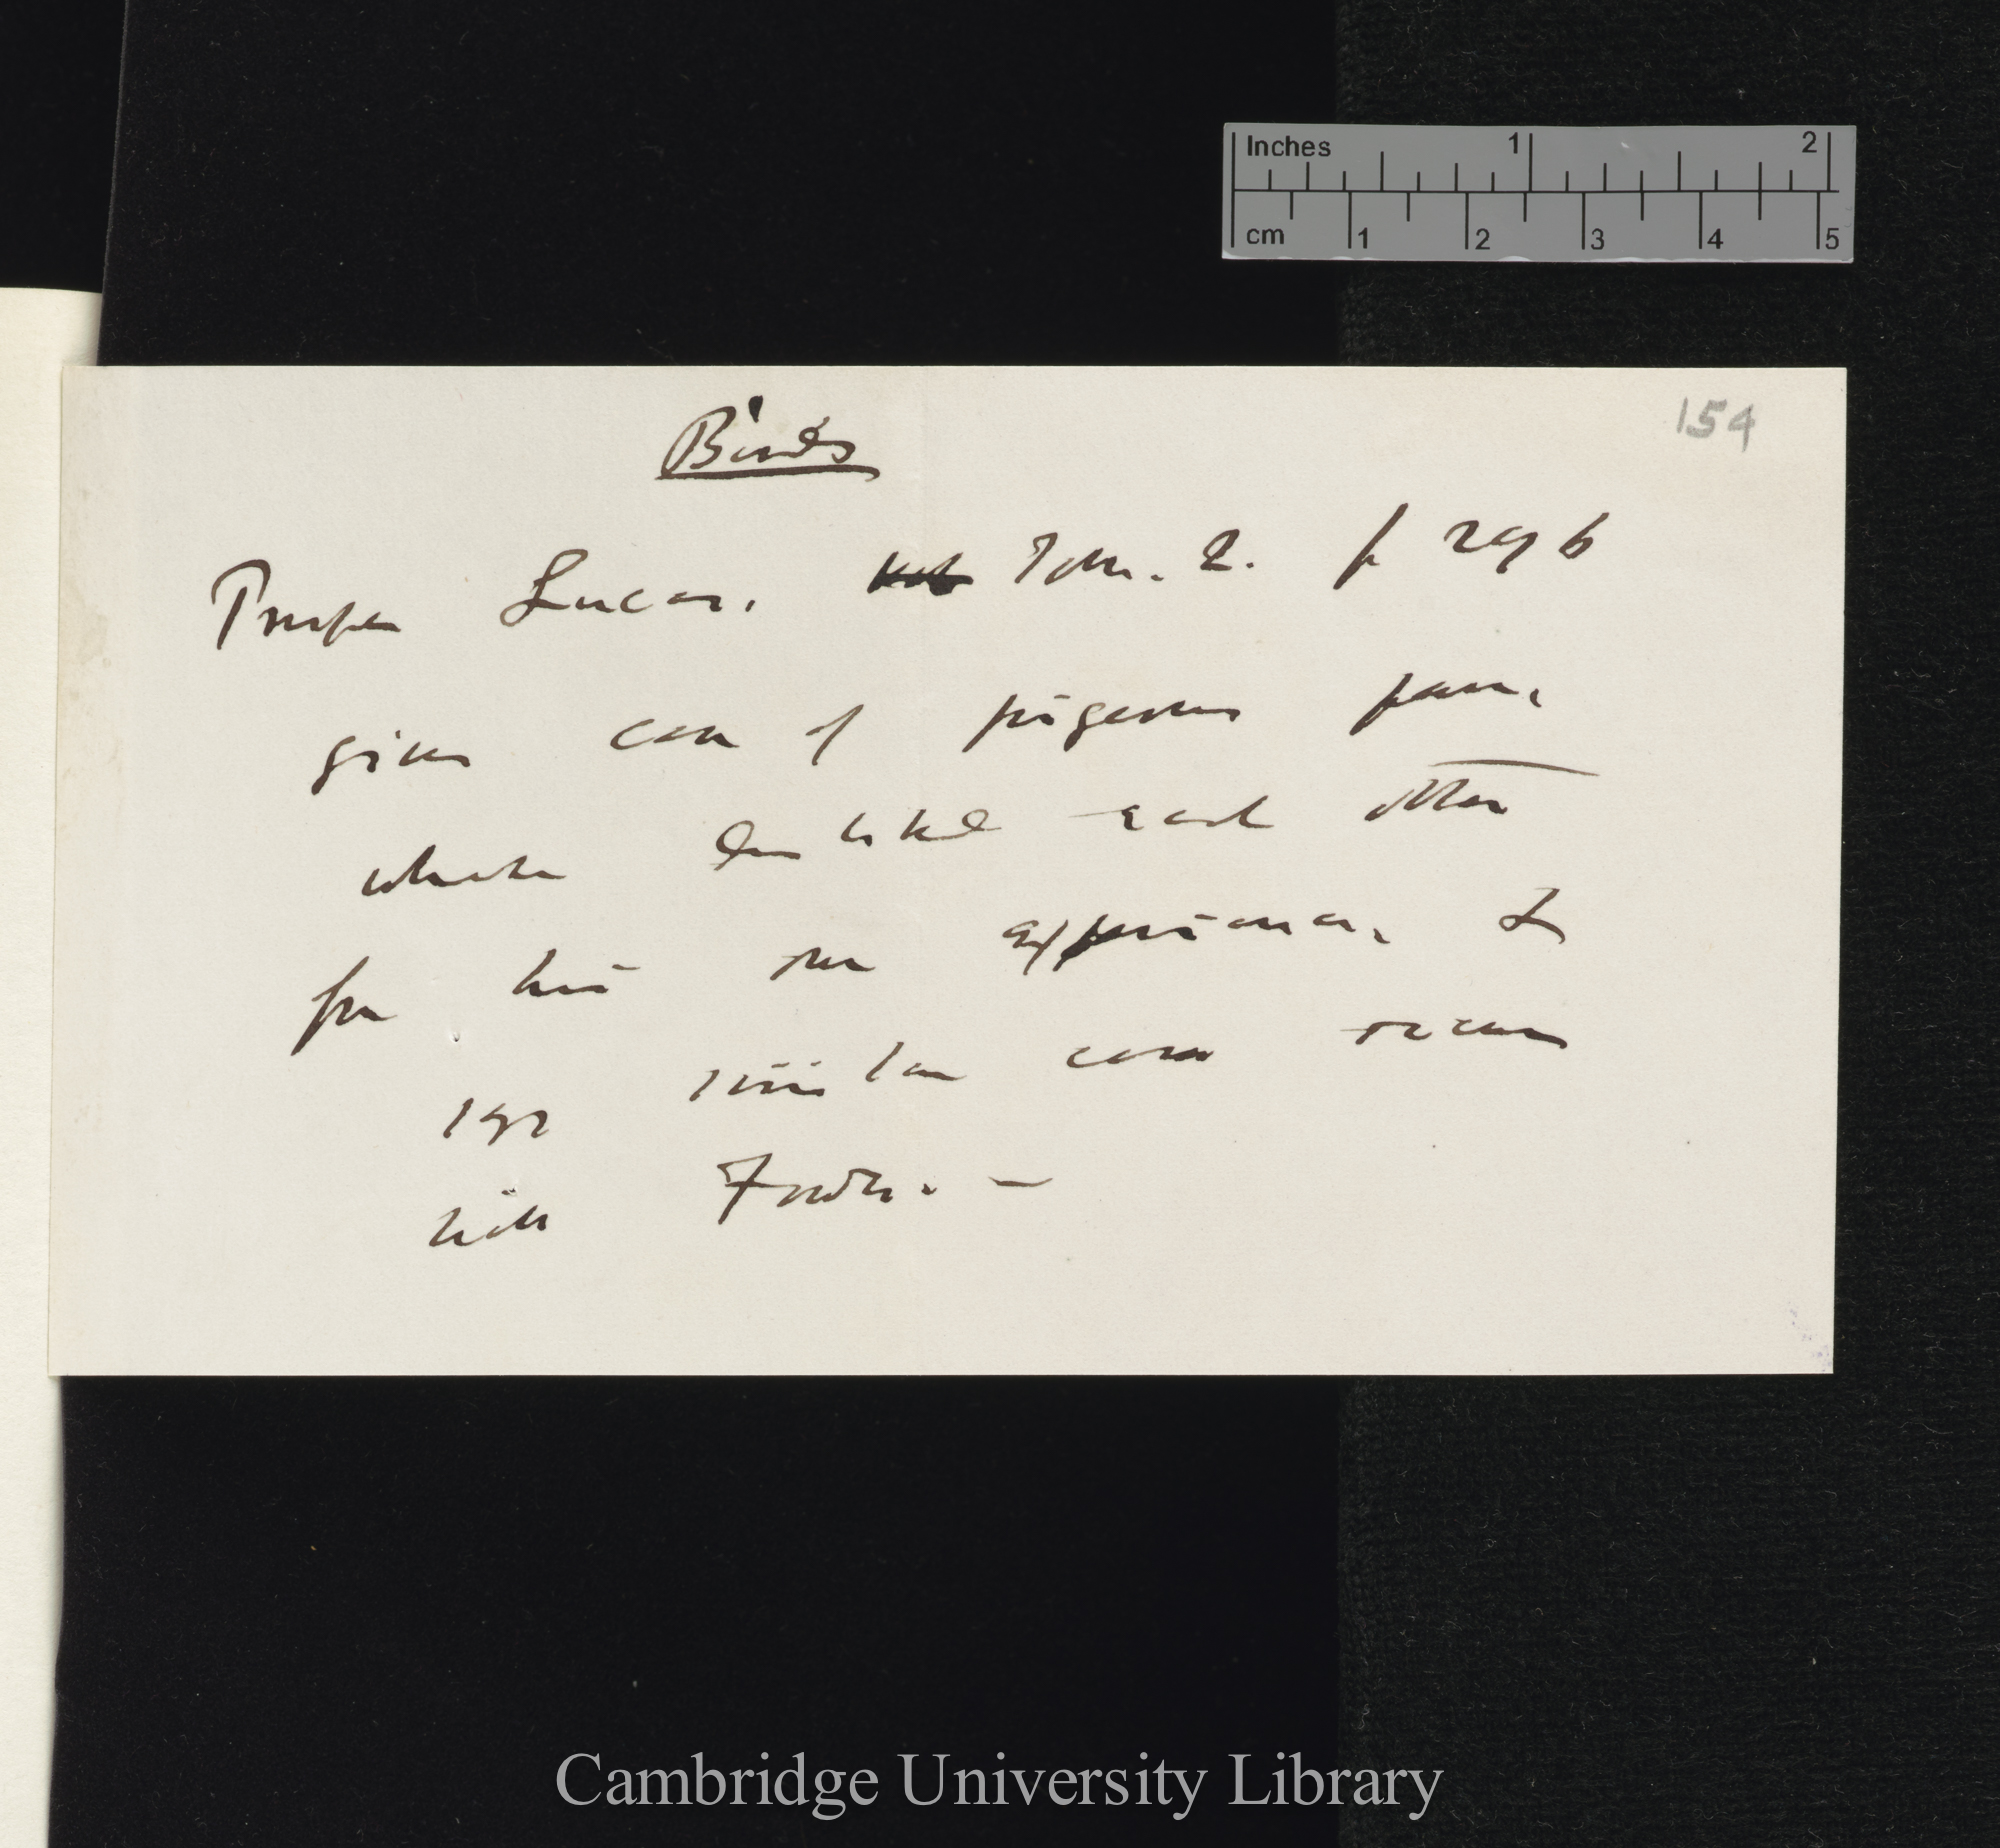 Inches 1 2
cm 1 2 3 4 5
154
Birds
Prosper Lucas. Tom. 2. p 296
gives case of pigeons pairs
which disliked each other
from his own experience, &
says similar cases occur
with Fowls. —
Cambridge University Library